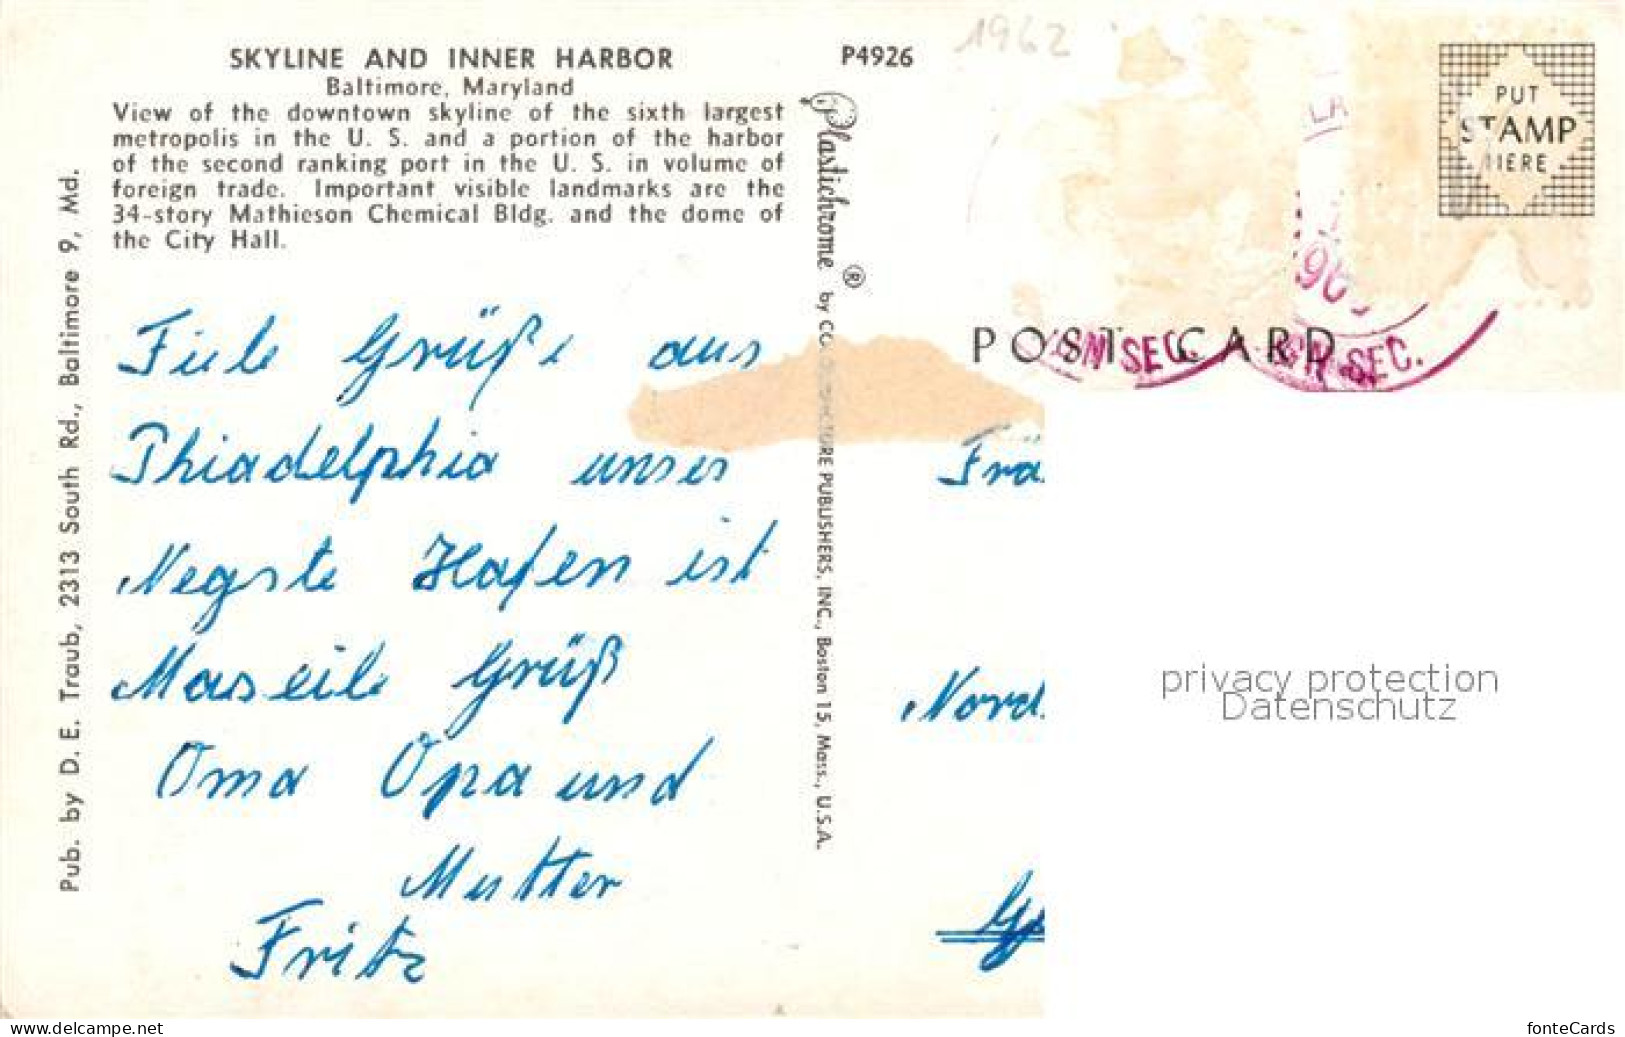 SKYLINE AND INNER HARBOR
Baltimore, Maryland
View of the downtown skyline of the sixth largest
metropolis in the U. S. and a portion of the harbor
of the second ranking port in the U. S. in volume of
foreign trade. Important visible landmarks are the
34-story Mathieson Chemical Bldg. and the dome of
the City Hall.
P4926
1962
PUT
STAMP
HERE
Pub. by D. E. Traub, 2313 South Rd., Baltimore 9, Md.
Plastichrome ® by COLOURPICTURE PUBLISHERS, INC., Boston 15, Mass., U.S.A.
LA
POST CARD
GN SEC.
GN SEC.
Fiele Grüße aus
Phiadelphia unser
Negste Hafen ist
Maseile Grüß
Oma Opa und
Mutter
Fritz
Frä
Nord
privacy protection
Datenschutz
www.delcampe.net
fonteCards